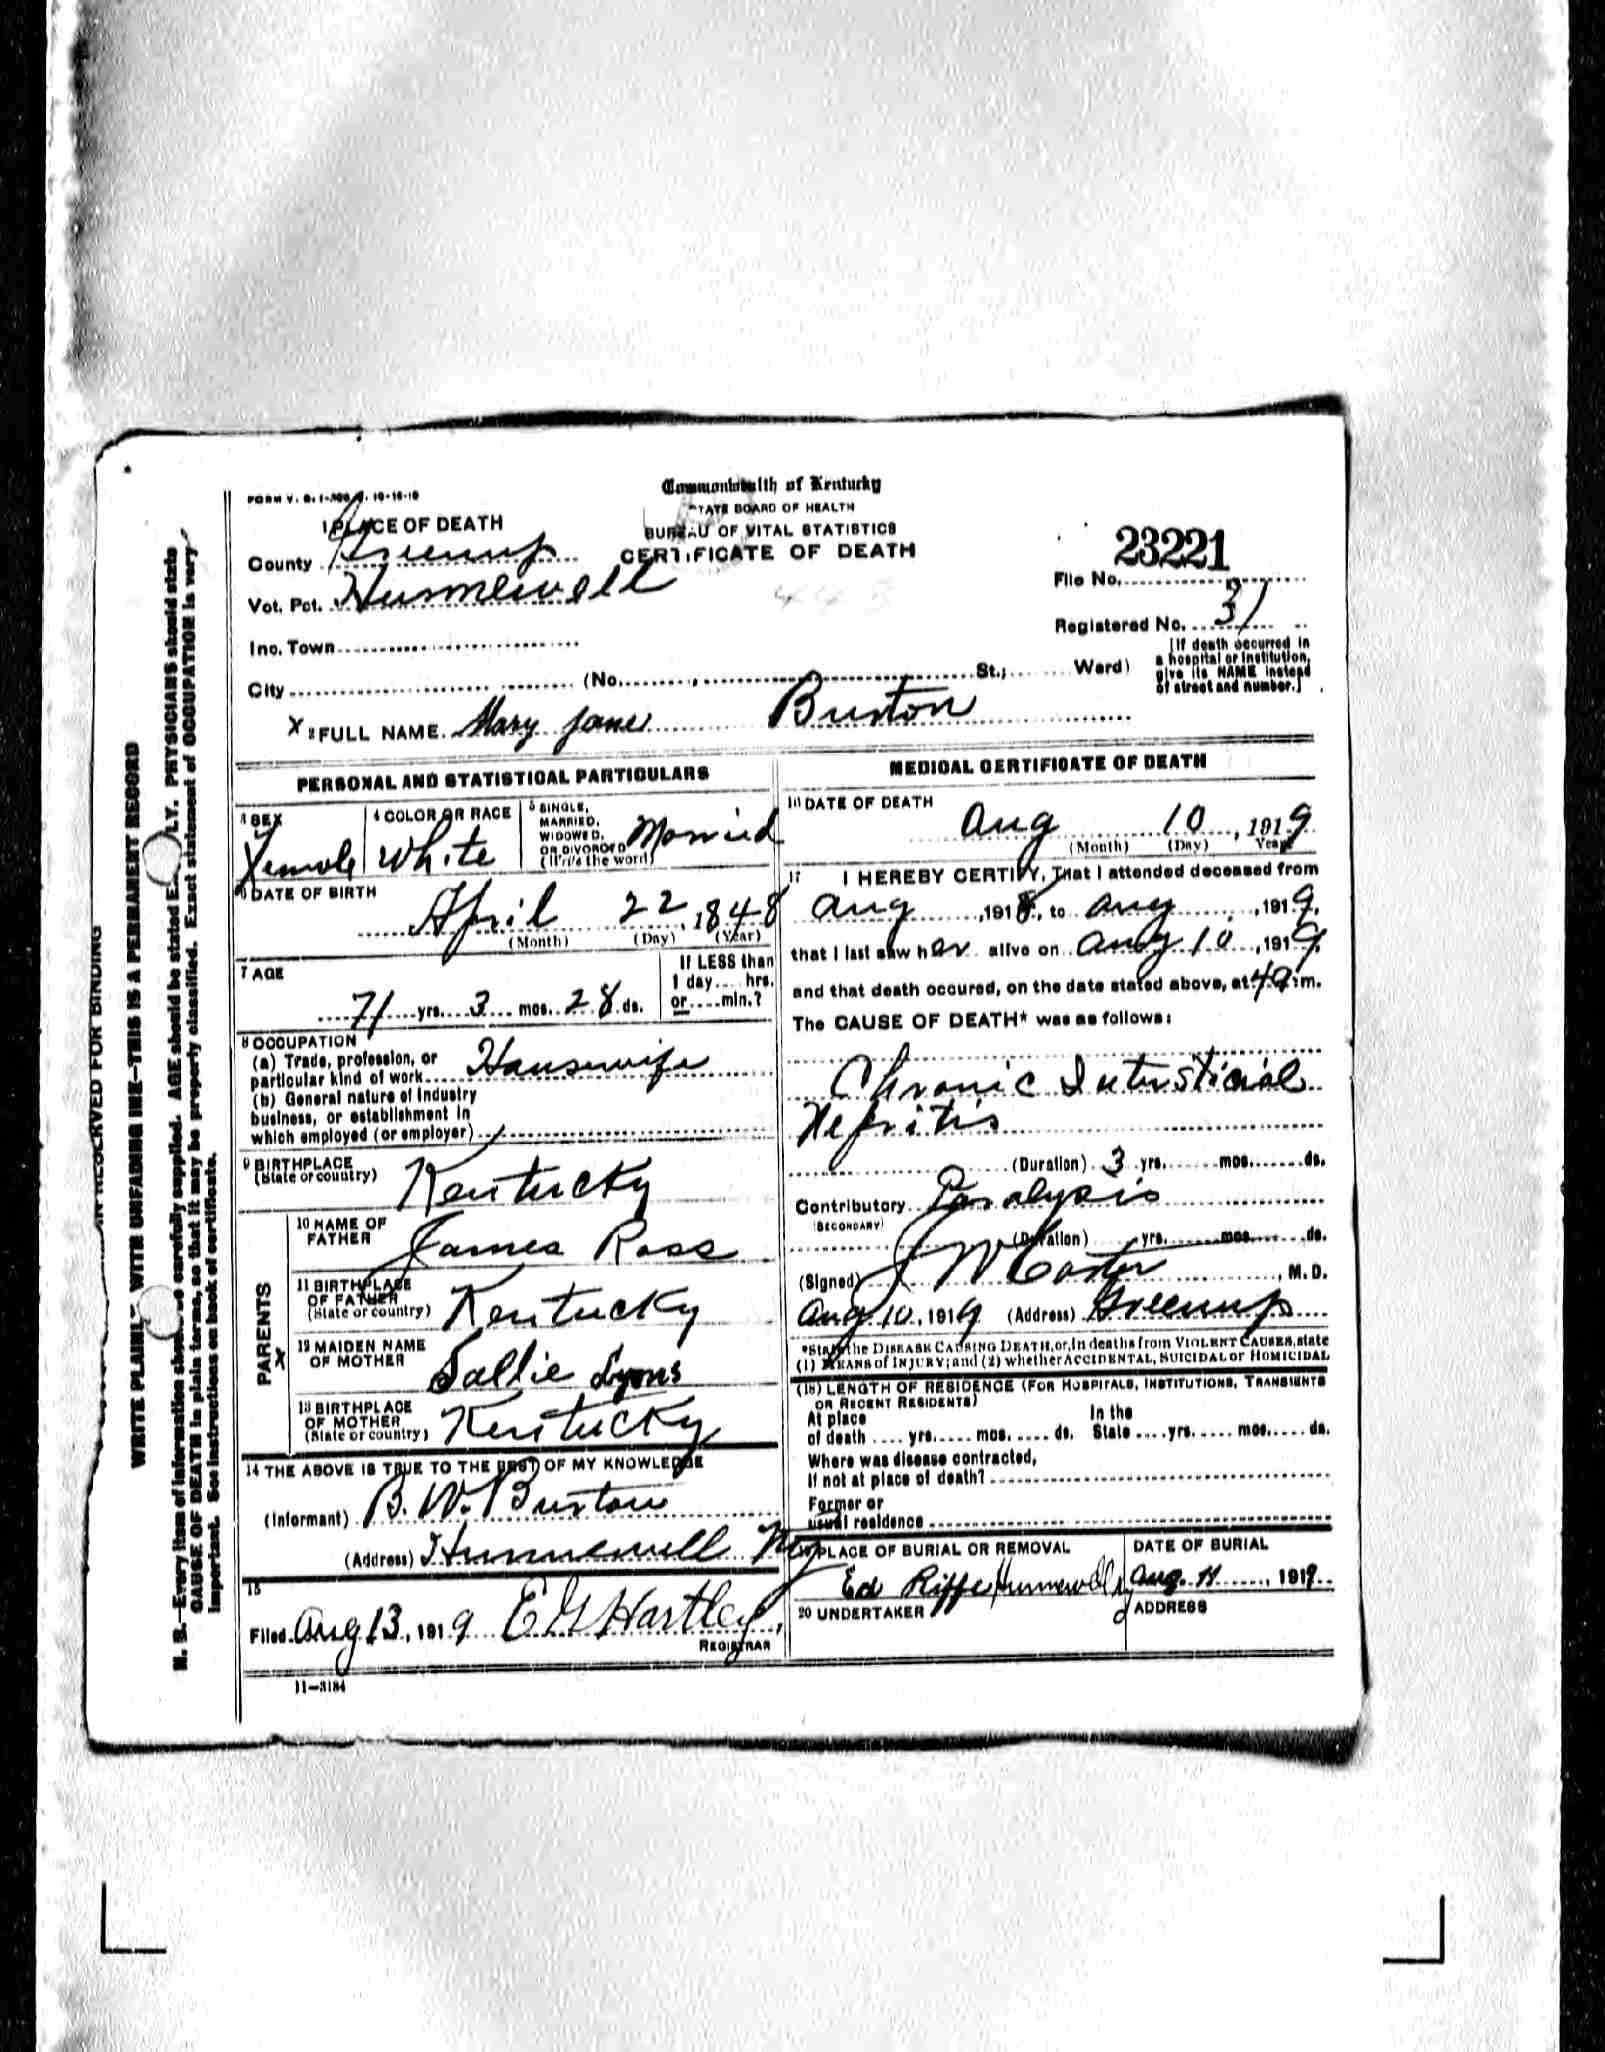 Commonwealth of Kentucky
STATE BOARD OF HEALTH
BUREAU OF VITAL STATISTICS
CERTIFICATE OF DEATH
1 PLACE OF DEATH
County Greenup
Vot. Pct. Hunnewell
Inc. Town
City (No. St.; Ward)
23221
File No.
Registered No. 31
[If death occurred in
a hospital or institution,
give its NAME instead
of street and number.]
X 2 FULL NAME. Mary Jane Burton
PERSONAL AND STATISTICAL PARTICULARS
3 SEX
Female
4 COLOR OR RACE
White
5 SINGLE,
MARRIED,
WIDOWED,
OR DIVORCED
(Write the word)
Married
6 DATE OF BIRTH
April 22, 1848
(Month) (Day) (Year)
7 AGE
71 yrs. 3 mos. 28 ds.
If LESS than
1 day.... hrs.
or....min.?
8 OCCUPATION
(a) Trade, profession, or
particular kind of work Housewife
(b) General nature of industry
business, or establishment in
which employed (or employer)
9 BIRTHPLACE
(State or country) Kentucky
PARENTS
X
10 NAME OF
FATHER James Ross
11 BIRTHPLACE
OF FATHER
(State or country) Kentucky
12 MAIDEN NAME
OF MOTHER Sallie Lyons
13 BIRTHPLACE
OF MOTHER
(State or country) Kentucky
14 THE ABOVE IS TRUE TO THE BEST OF MY KNOWLEDGE
(Informant) B. W. Burton
(Address) Hunnewell Ky
15
Filed Aug 13, 1919 E G Hartley
REGISTRAR
11-3184
MEDICAL CERTIFICATE OF DEATH
16 DATE OF DEATH
Aug 10, 1919
(Month) (Day) Year
17 I HEREBY CERTIFY, That I attended deceased from
Aug, 1918, to Aug, 1919,
that I last saw her alive on Aug 10, 1919,
and that death occured, on the date stated above, at 4 a m.
The CAUSE OF DEATH* was as follows:
Chronic Intersticial
Nefritis
(Duration) 3 yrs. mos. ds.
Contributory Paralysis
(SECONDARY)
(Duration) yrs. mos. ds.
(Signed) J W , M.D.
Aug 10, 1919 (Address) Greenup
*State the DISEASE CAUSING DEATH, or, in deaths from VIOLENT CAUSES, state
(1) MEANS of INJURY; and (2) whether ACCIDENTAL, SUICIDAL or HOMICIDAL
(18) LENGTH OF RESIDENCE (FOR HOSPITALS, INSTITUTIONS, TRANSIENTS
OR RECENT RESIDENTS)
At place
of death .... yrs..... mos. .... ds.
In the
State ....yrs..... mos..... ds.
Where was disease contracted,
If not at place of death?
Former or
usual residence
19 PLACE OF BURIAL OR REMOVAL
Ed Riffe Hunnewell
DATE OF BURIAL
Aug. 11, 1919
20 UNDERTAKER
ADDRESS
RESERVED FOR BINDING
WRITE PLAINLY WITH UNFADING INK-THIS IS A PERMANENT RECORD
N. B.-Every item of information should be carefully supplied. AGE should be stated EXACTLY. PHYSICIANS should state
CAUSE OF DEATH in plain terms, so that it may be properly classified. Exact statement of OCCUPATION is very
important. See instructions on back of certificate.